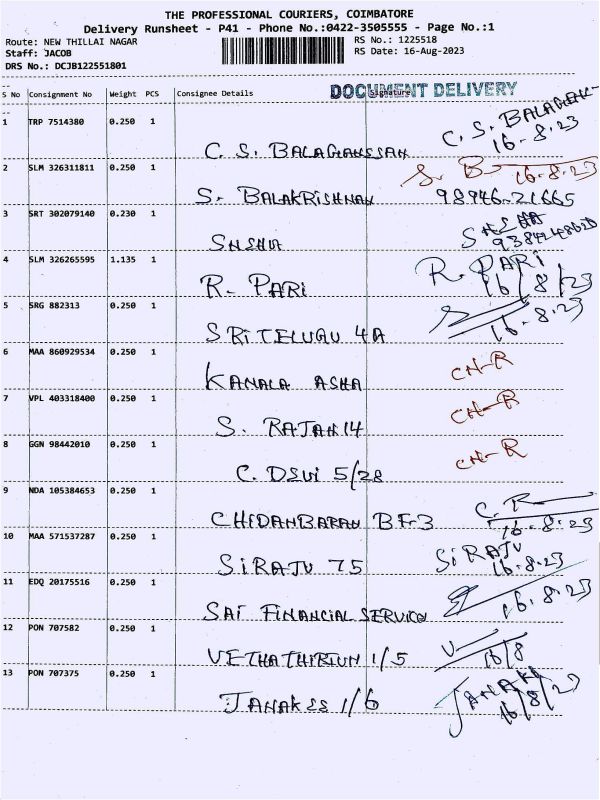 THE PROFESSIONAL COURIERS, COIMBATORE
Delivery Runsheet - P41 - Phone No.:0422-3505555 - Page No.:1
Route: NEW THILLAI NAGAR RS No.: 1225518
Staff: JACOB RS Date: 16-Aug-2023
DRS No.: DCJB122551801
DOCUMENT DELIVERY
S No Consignment No Weight PCS Consignee Details Signature
1 TRP 7514380 0.250 1
C. S. BALAGANSSAN C. S. BALAGAN 16-8-23
2 SLM 326311811 0.250 1
S. BALAKRISHNAN S. B 16-8-23 98946-21665
3 SRT 302079140 0.230 1
SNSHA
4 SLM 326265595 1.135 1
R. PARI R. PARI 16/8/23
5 SRG 882313 0.250 1
SRI TELUGU 4A 16-8-23
6 MAA 860929534 0.250 1
KANALA ASHA CN-R
7 VPL 403318400 0.250 1
S. RAJAN 14 CN-R
8 GGN 98442010 0.250 1
C. DSVI 5/28 CN-R
9 NDA 105384653 0.250 1
CHIDANBARAN BF-3 C. R 16-8-23
10 MAA 571537287 0.250 1
SIRAJU 75 SIRAJU 16-8-23
11 EDQ 20175516 0.250 1
SAI FINANCIAL SERVICE 16-8-23
12 PON 707582 0.250 1
VETHATHIRIUN 1/5 16/8
13 PON 707375 0.250 1
JANAKSS 1/6 JANAKI 16/8/23